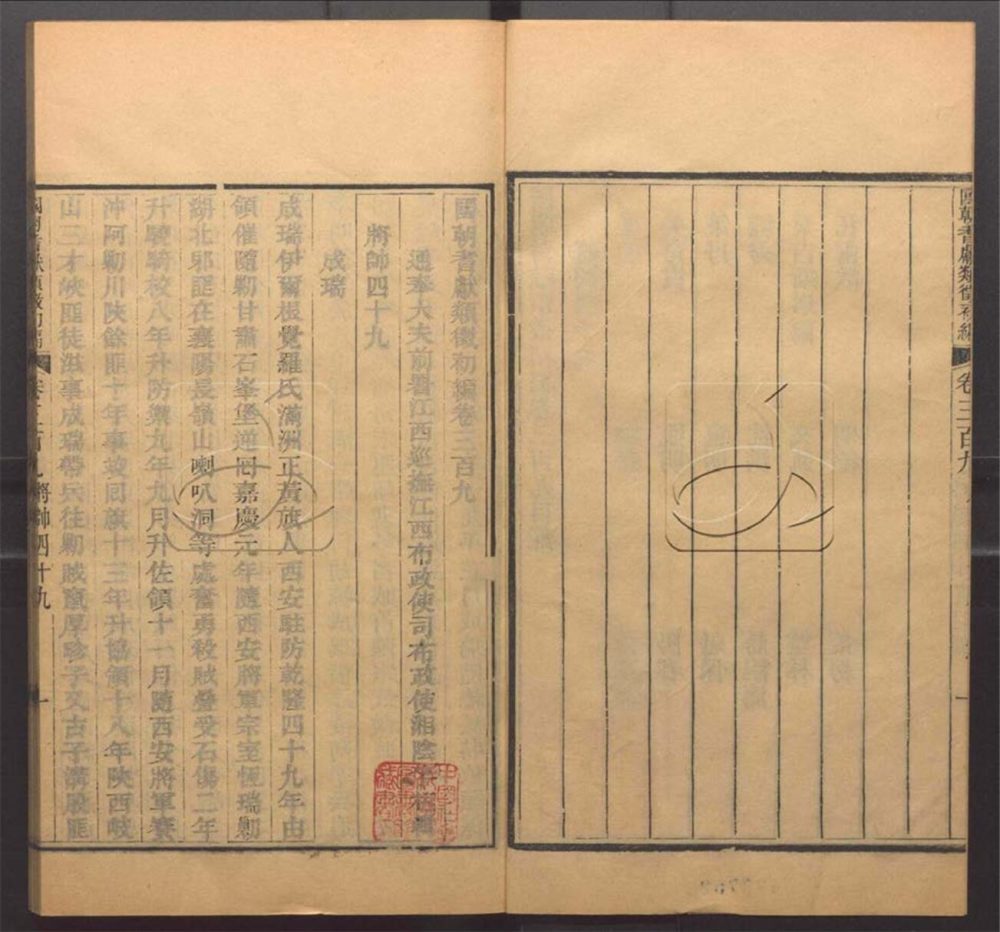 國朝耆獻類徵初編
卷三百九
國朝耆獻類徵初編卷三百九
通奉大夫前署江西巡撫江西布政使司布政使湘陰李桓輯
將帥四十九
成瑞
成瑞伊爾根覺羅氏滿洲正黃旗人西安駐防乾隆四十九年由
領催隨勦甘肅石峯堡逆回嘉慶元年隨西安將軍宗室恆瑞勦
湖北邪匪在襄陽長嶺山喇叭洞等處奮勇殺賊疊受石傷二年
升驍騎校八年升防禦九年九月升佐領十一月隨西安將軍賽
沖阿勦川陝餘匪十年事竣回旗十三年升協領十八年陝西岐
山三才峽匪徒滋事成瑞帶兵往勦賊竄厚畛子又古子溝股匪
卷三百九 將帥四十九
一